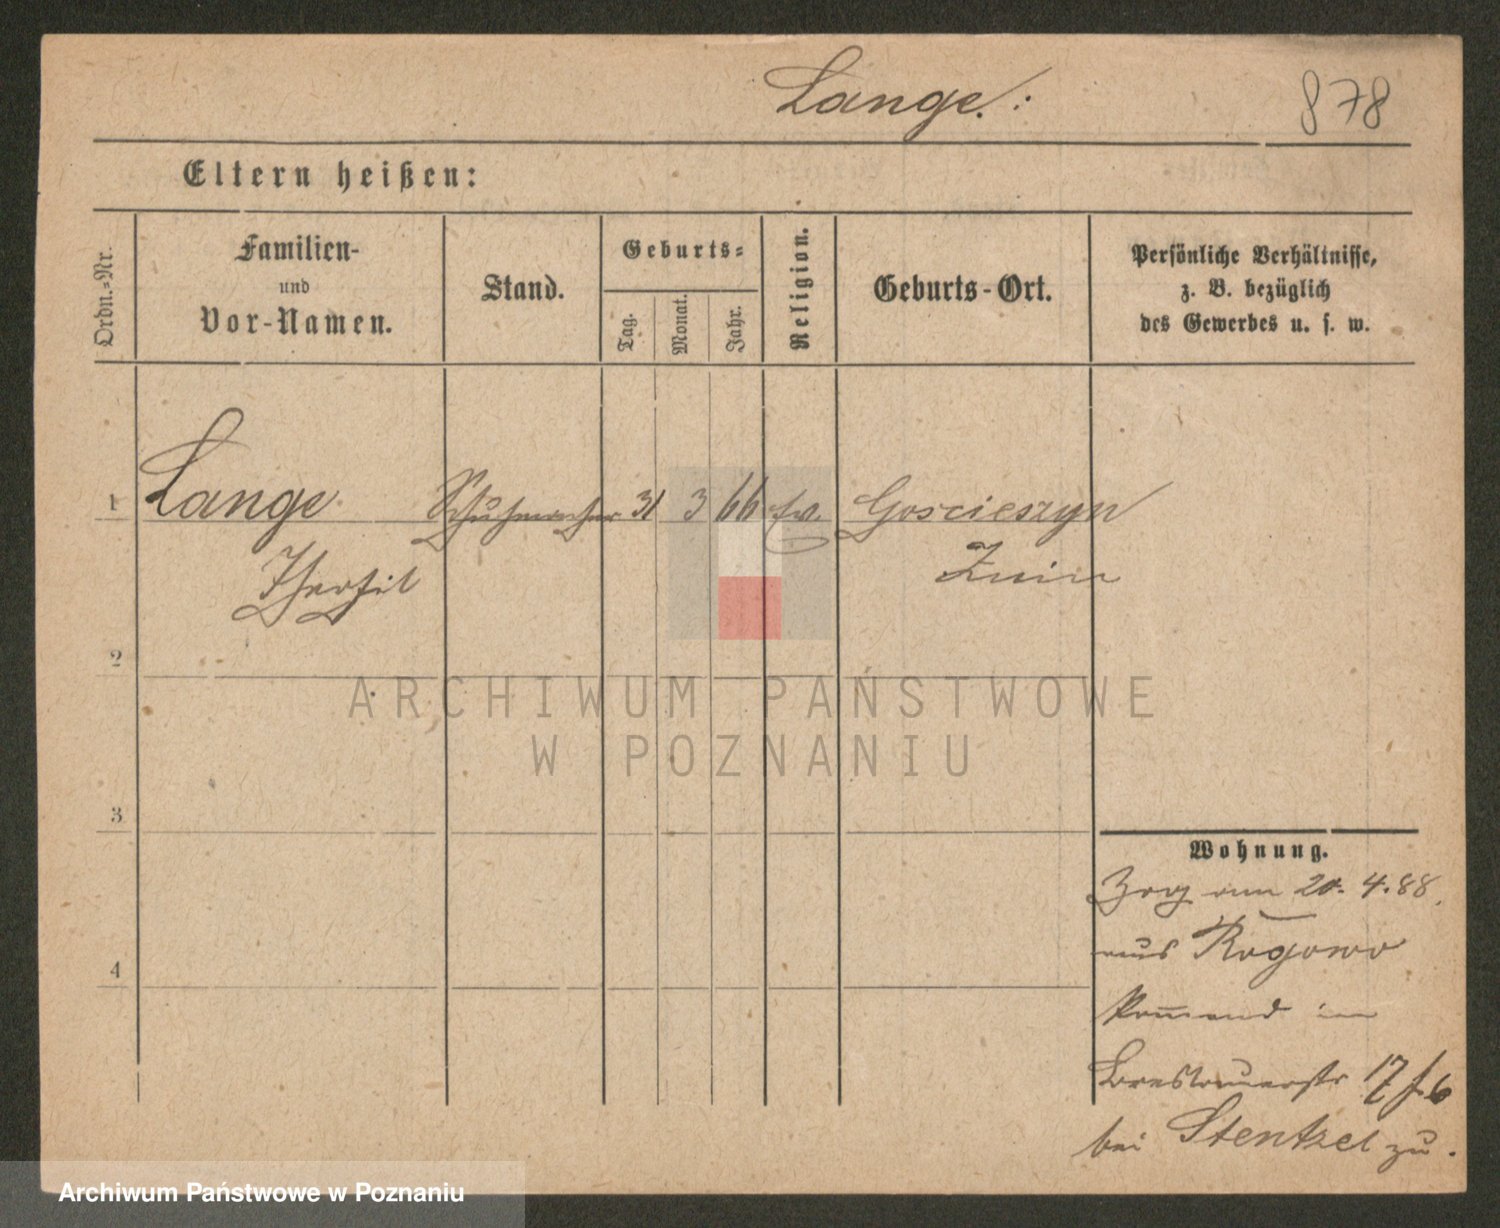 Lange.:
878
Eltern heißen:
Ordn.-Nr.
Familien-
und
Vor-Namen.
Stand.
Geburts-
Tag.
Monat.
Jahr.
Religion.
Geburts-Ort.
Persönliche Verhältnisse,
z. B. bezüglich
des Gewerbes u. s. w.
1 Lange Schuhmacher 31 3 66 ev. Goscieszyn
Thersil Znin
2
3
4
Wohnung.
Zog am 20. 4. 88.
aus Rogowo
kommend in
Breslauerstr 17/6
bei Stentzel zu.
ARCHIWUM PAŃSTWOWE
W POZNANIU
Archiwum Państwowe w Poznaniu